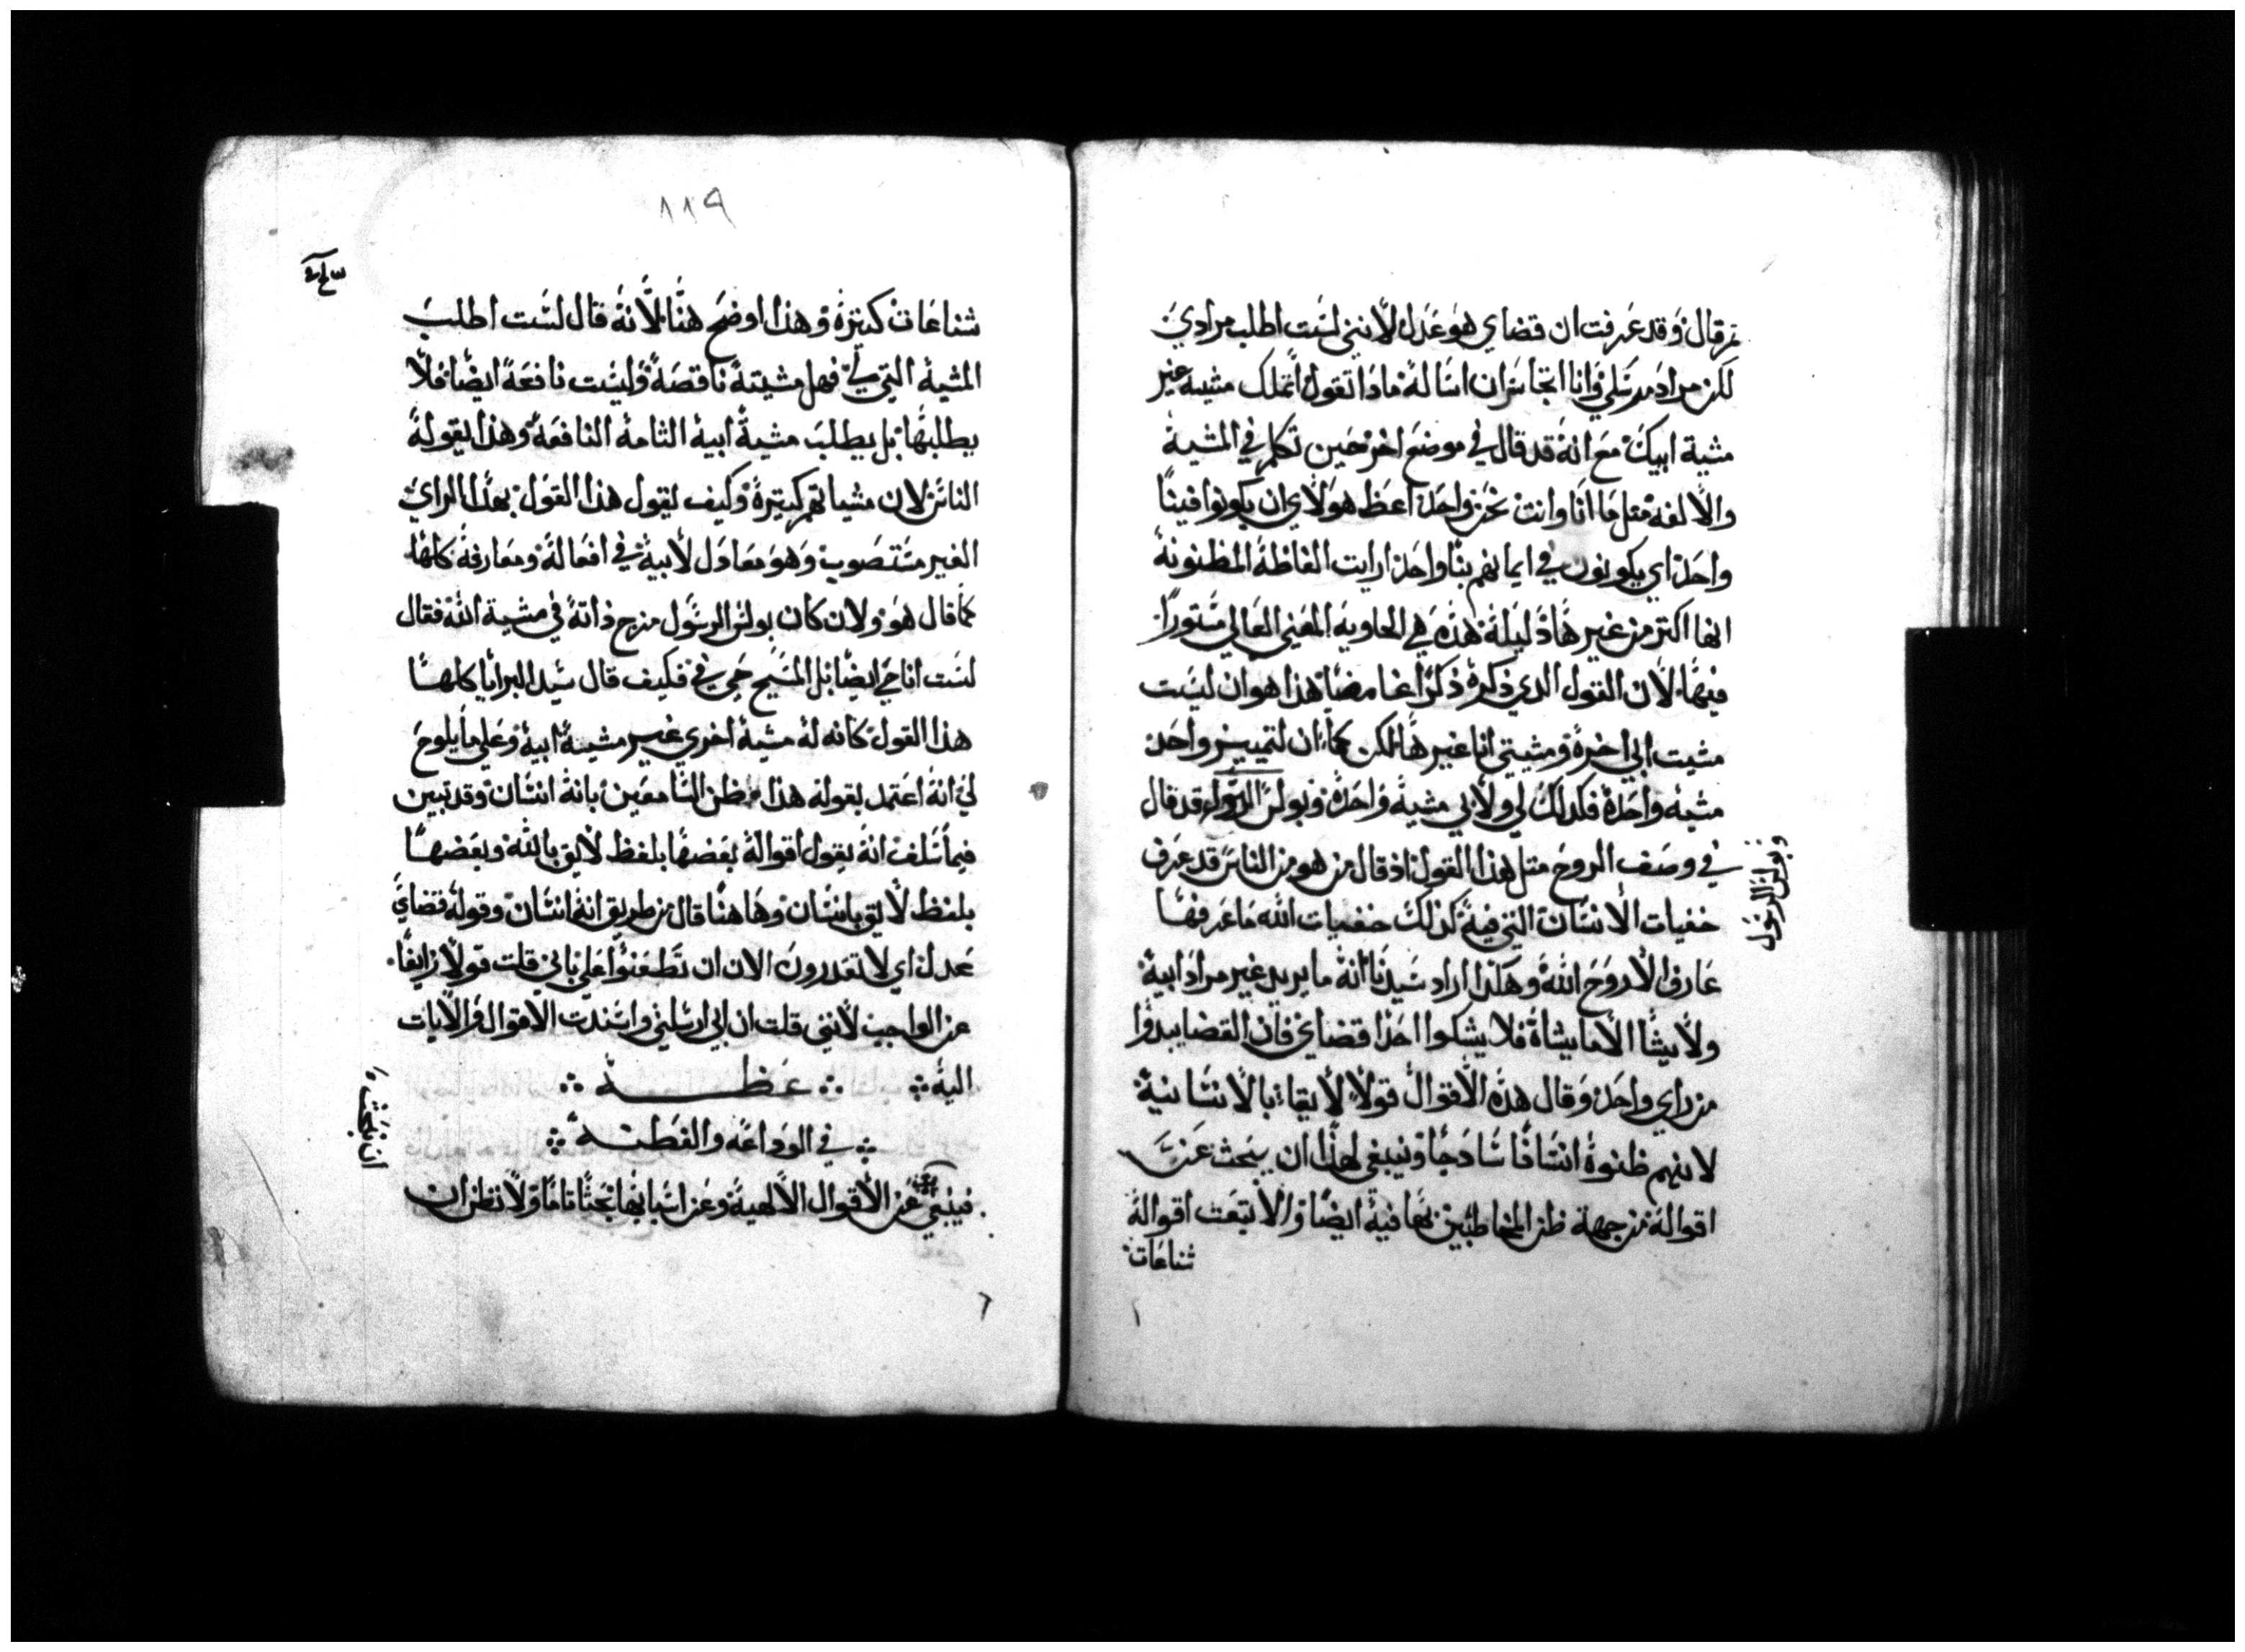 ثم قال وقد عرفت ان قضاي هو عدل لانني لست اطلب مرادي
لكن مراد مرسلي وانا اتجاسر ان اساله ماذا تقول اتملك مشية غير
مشية ابيك مع انه قد قال في موضع اخر حين تكلم في المشية
والالفه مثل ما انا وانت نحن واحد اعط هولاي ان يكونوا فينا
واحد اي يكونون في ايمانهم بنا واحد ارايت الفاظه المظنونة
انها اكتر من غيرها دليلة هذه هي الحاويه المعني العالي مستورا
فيها لان القول الدي ذكره ذكرا غامضا هذا هو ان ليست
مشيت ابي اخرة ومشيتي انا غيرها لكن كما ان لتمييز واحد
مشيه واحدة فكدلك لي ولابي مشية واحدة وبولس الرسول قد قال
في وصف الروح متل هذا القول اذ قال من هو من الناس قد عرف
خفيات الانسان التي فية كذلك خفيات الله ما عرفها
عارف الا روح الله وهكذا اراد سيدنا انه ما يريد غير مراد ابية
ولا يشا الا ما يشاة فلا يشكوا احدا قضاي فان القضا يبدوا
من راي واحد وقال هذه الاقوال قولا لايقا بالانسانية
لانهم ظنوة انسانا سادجا وينبغي لهذا ان يبحث عن
اقواله من جهة ظن المخاطبين بها فية ايضا والا تبعت اقواله
شناعات
وبولس الرسول
٨٨٩
شناعات كتيرة وهذا اوضح هنا لانه قال لست اطلب
المشية التي لي فهل مشيته ناقصة وليست نافعة ايضا فلا
يطلبها بل يطلب مشية ابية التامة النافعة وهذا يقوله
الناس لان مشياتهم كتيرة وكيف يقول هذا القول بهذا الراي
الغير مستصوب وهو معادل لابية في افعاله ومعارفة كلها
كما قال هو ولان كان بولس الرسول مزج ذاته في مشية الله فقال
لست انا حي ايضا بل المسيح حي في فكيف قال سيد البرايا كلها
هذا القول كانه له مشية اخري غير مشية ابية وعلي ما يلوح
لي انه اعتمد بقوله هذا ظن السامعين بانه انسان وقد تبين
فيما سلف انه يقول اقواله بعضها بلفظ لايق بالله وبعضها
بلفظ لايق بانسان وها هنا قال من طريق انه انسان وقوله قضاي
عدل اي لا تقدرون الان ان تطعنوا علي باني قلت قولا زايفا
عن الواجب لانني قلت ان ابي ارسلني واسندت الاقوال والايات
الية عظه
في الوداعه والفطنه
فينبغي عن الاقوال الالهية وعن اسبابها بحثا تاما ولا نظن ان
ان نبحث